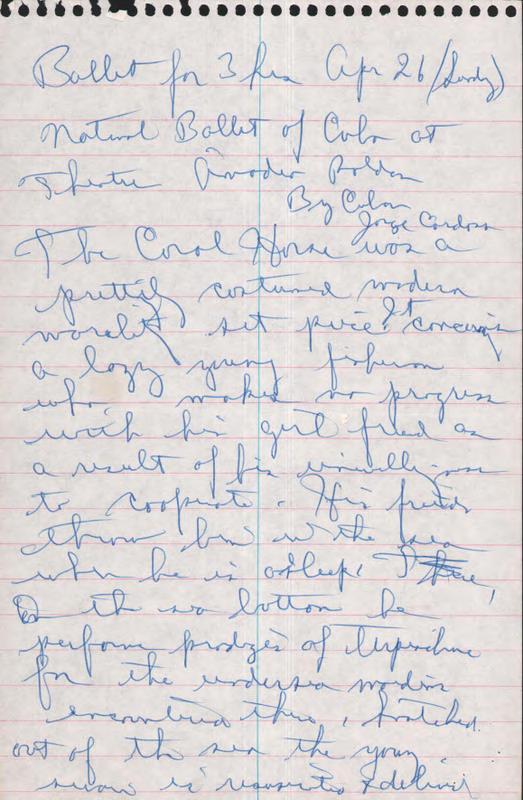 Ballet for 3 hrs Apr 26 (Sunday)
National Ballet of Cuba at
Theatre Amadeo Roldan
By Cuban
Jorge Cardoso
The Coral Horse was a
prettily costumed modern
set piece. It concerns
a lazy young fisherman
who makes no progress
with his girl friend as
a result of his unwillingness
to cooperate. His friends
throw him in the sea
when he is asleep.
On the sea bottom he
performs prodigies of
for the undersea maidens
encountered there,
out of the sea the young
swain is &